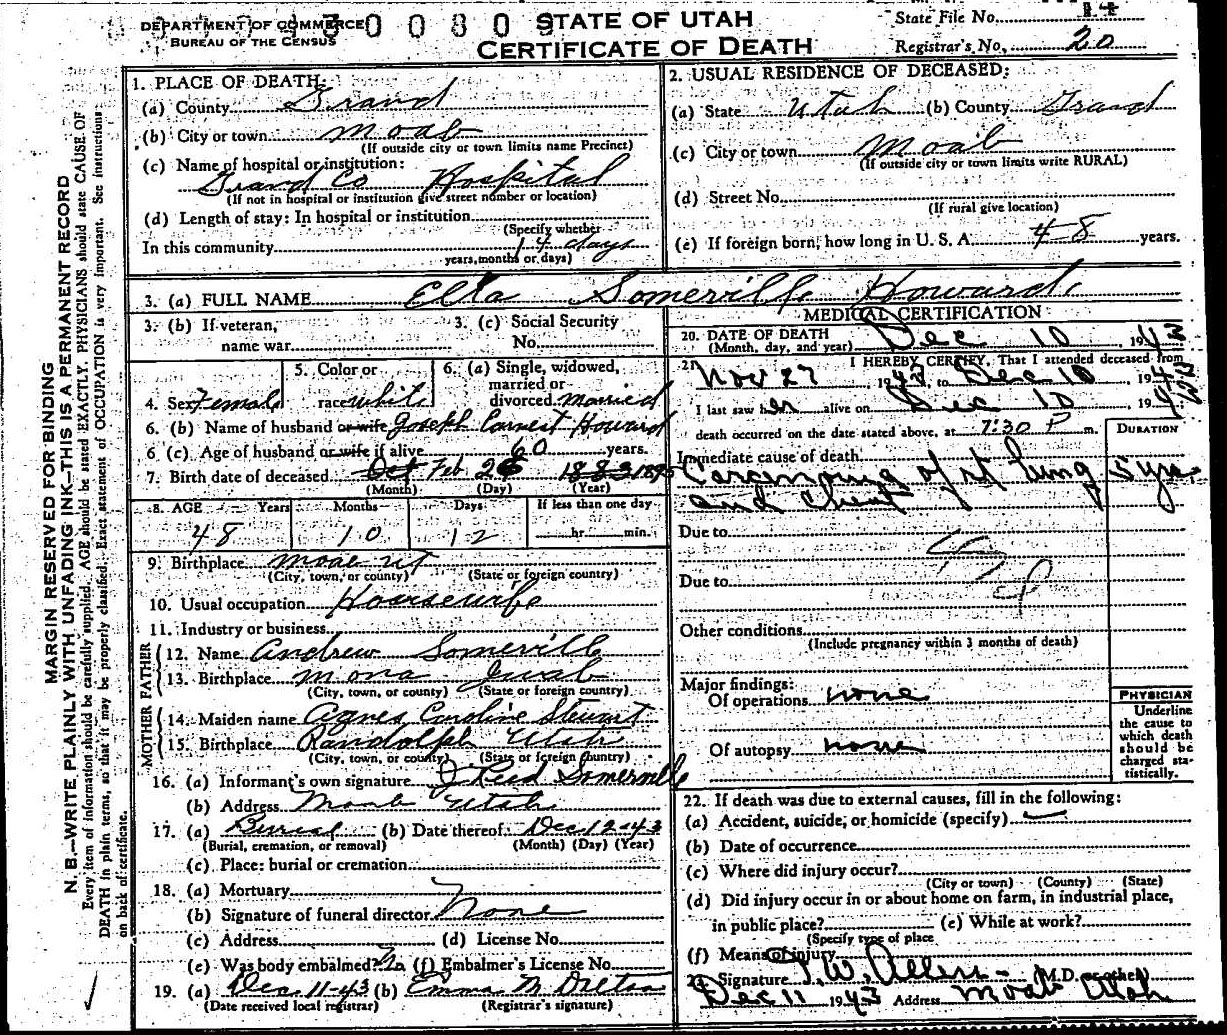 DEPARTMENT OF COMMERCE
BUREAU OF THE CENSUS
30 0809
STATE OF UTAH
CERTIFICATE OF DEATH
State File No. 14
Registrar's No. 20
MARGIN RESERVED FOR BINDING
N. B.—WRITE PLAINLY WITH UNFADING INK—THIS IS A PERMANENT RECORD
Every item of information should be carefully supplied. AGE should be stated EXACTLY. PHYSICIANS should state CAUSE OF
DEATH in plain terms, so that it may be properly classified. Exact statement of OCCUPATION is very important. See instructions
on back of certificate.
1. PLACE OF DEATH:
(a) County Grand
(b) City or town Moab
(If outside city or town limits name Precinct)
(c) Name of hospital or institution:
Grand Co Hospital
(If not in hospital or institution give street number or location)
(d) Length of stay: In hospital or institution
(Specify whether
In this community 14 days
years, months or days)
2. USUAL RESIDENCE OF DECEASED:
(a) State Utah (b) County Grand
(c) City or town Moab
(If outside city or town limits write RURAL)
(d) Street No.
(If rural give location)
(e) If foreign born, how long in U. S. A. 48 years.
3. (a) FULL NAME Ella Somerville Howard
3. (b) If veteran, name war
3. (c) Social Security No.
4. Sex Female
5. Color or race white
6. (a) Single, widowed, married or divorced married
6. (b) Name of husband or wife Joseph Earnest Howard
6. (c) Age of husband or wife if alive 60 years.
7. Birth date of deceased Oct Feb. 26 1883 1895
(Month) (Day) (Year)
8. AGE Years Months Days If less than one day
48 10 12 hr. min.
9. Birthplace Moab Ut
(City, town, or county) (State or foreign country)
10. Usual occupation Housewife
11. Industry or business
FATHER
12. Name Andrew Somerville
13. Birthplace Mona
(City, town, or county) (State or foreign country)
MOTHER
14. Maiden name Agnes Caroline Stewart
15. Birthplace Randolph Utah
(City, town, or county) (State or foreign country)
16. (a) Informant's own signature J Reed Somerville
(b) Address Moab Utah
17. (a) Burial (b) Date thereof Dec 12-43
(Burial, cremation, or removal) (Month) (Day) (Year)
(c) Place: burial or cremation
18. (a) Mortuary
(b) Signature of funeral director None
(c) Address (d) License No.
(e) Was body embalmed? No (f) Embalmer's License No.
19. (a) Dec 11-43 (b) Emma M.
(Date received local registrar) (Registrar's signature)
MEDICAL CERTIFICATION
20. DATE OF DEATH Dec 10, 1943
(Month, day, and year)
21. I HEREBY CERTIFY, That I attended deceased from
Nov 27 1943, to Dec 10 1943
I last saw her alive on Dec 10 1943
death occurred on the date stated above, at 7:30 P m.
DURATION
Immediate cause of death
Carcinoma of rt lung 5 yrs
and chest
Due to
Due to
Other conditions
(Include pregnancy within 3 months of death)
Major findings:
Of operations none
Of autopsy none
PHYSICIAN
Underline
the cause to
which death
should be
charged sta-
tistically.
22. If death was due to external causes, fill in the following:
(a) Accident, suicide, or homicide (specify)
(b) Date of occurrence
(c) Where did injury occur?
(City or town) (County) (State)
(d) Did injury occur in or about home on farm, in industrial place,
in public place? (e) While at work?
(Specify type of place
(f) Means of injury
23. Signature I. W. Allen (M.D. or other)
Dec 11 1943 Address Moab Utah